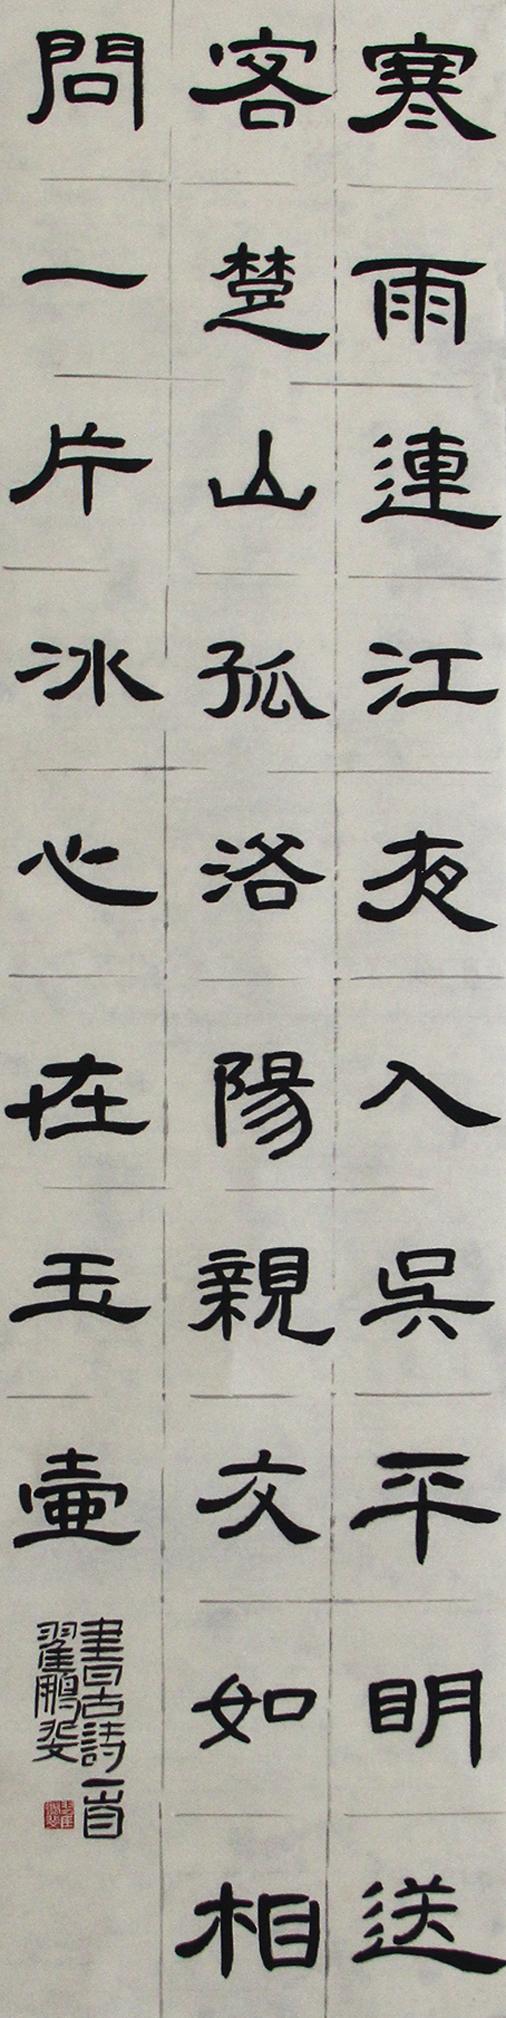 寒雨連江夜入吳平明送
客楚山孤洛陽親友如相
問一片冰心在玉壺
書古詩一首
翟鵬斐